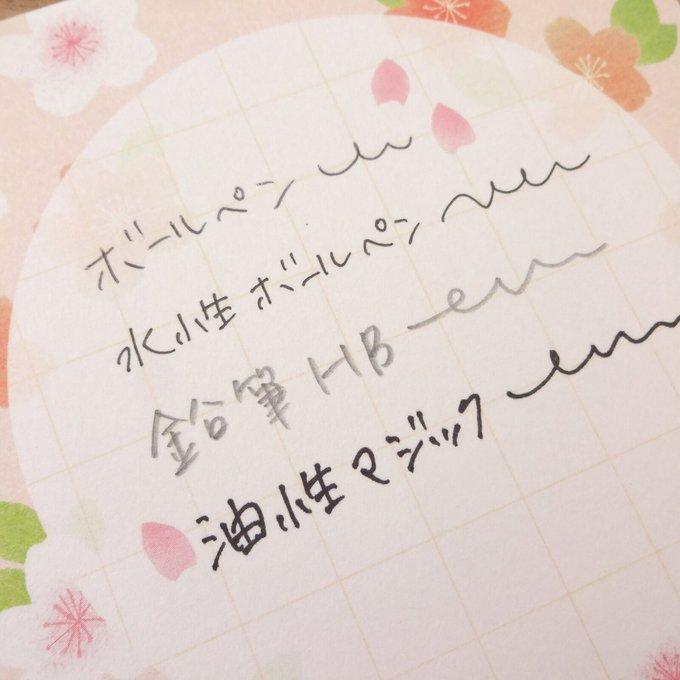 ボールペン
水性ボールペン
鉛筆HB
油性マジック